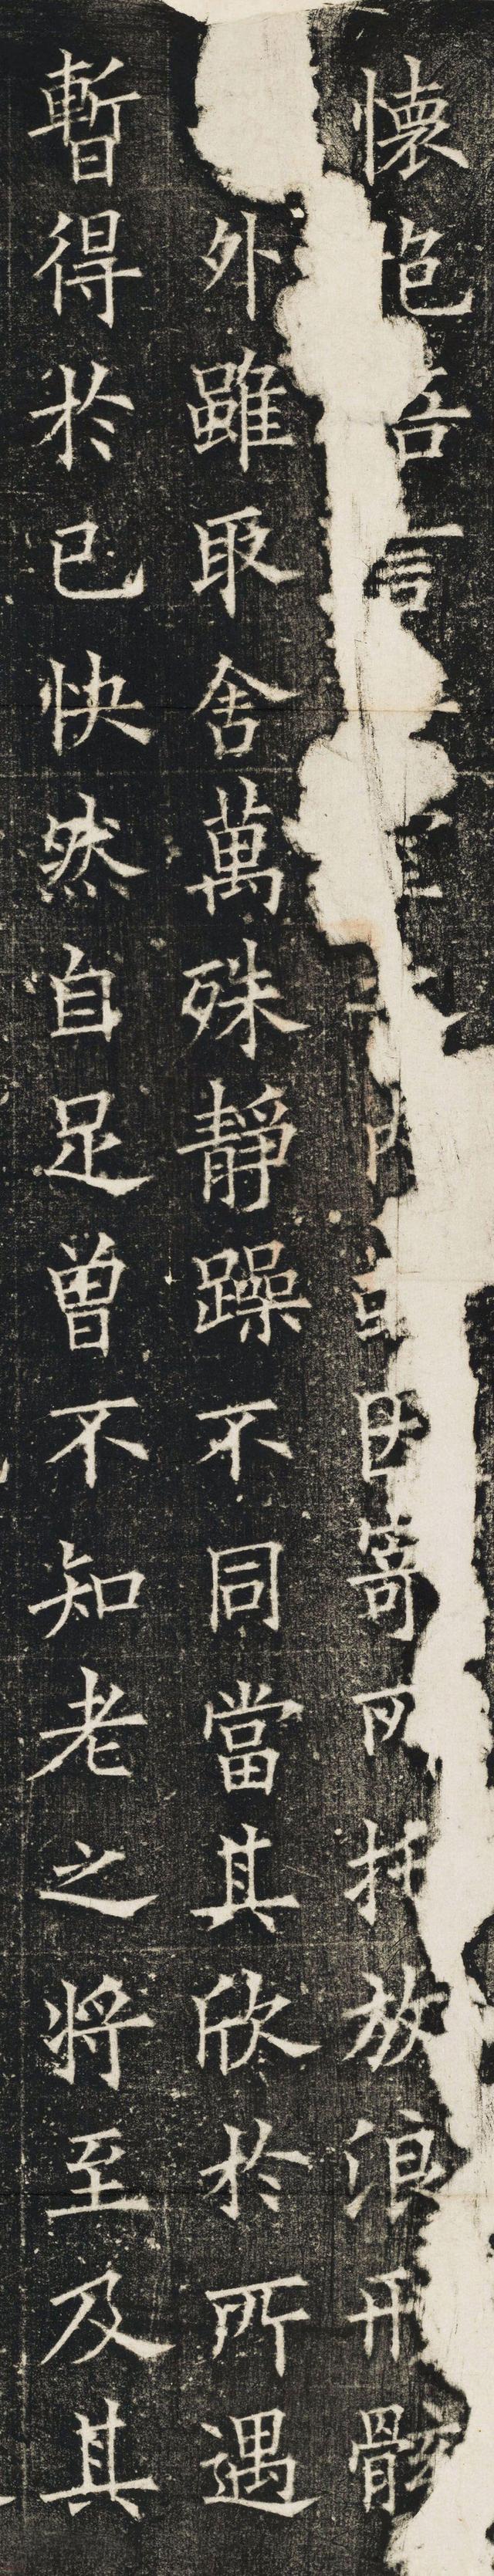 懷抱悟言一室之內或因寄所托放浪形骸
外雖取舍萬殊靜躁不同當其欣於所遇
暫得於己快然自足曾不知老之將至及其